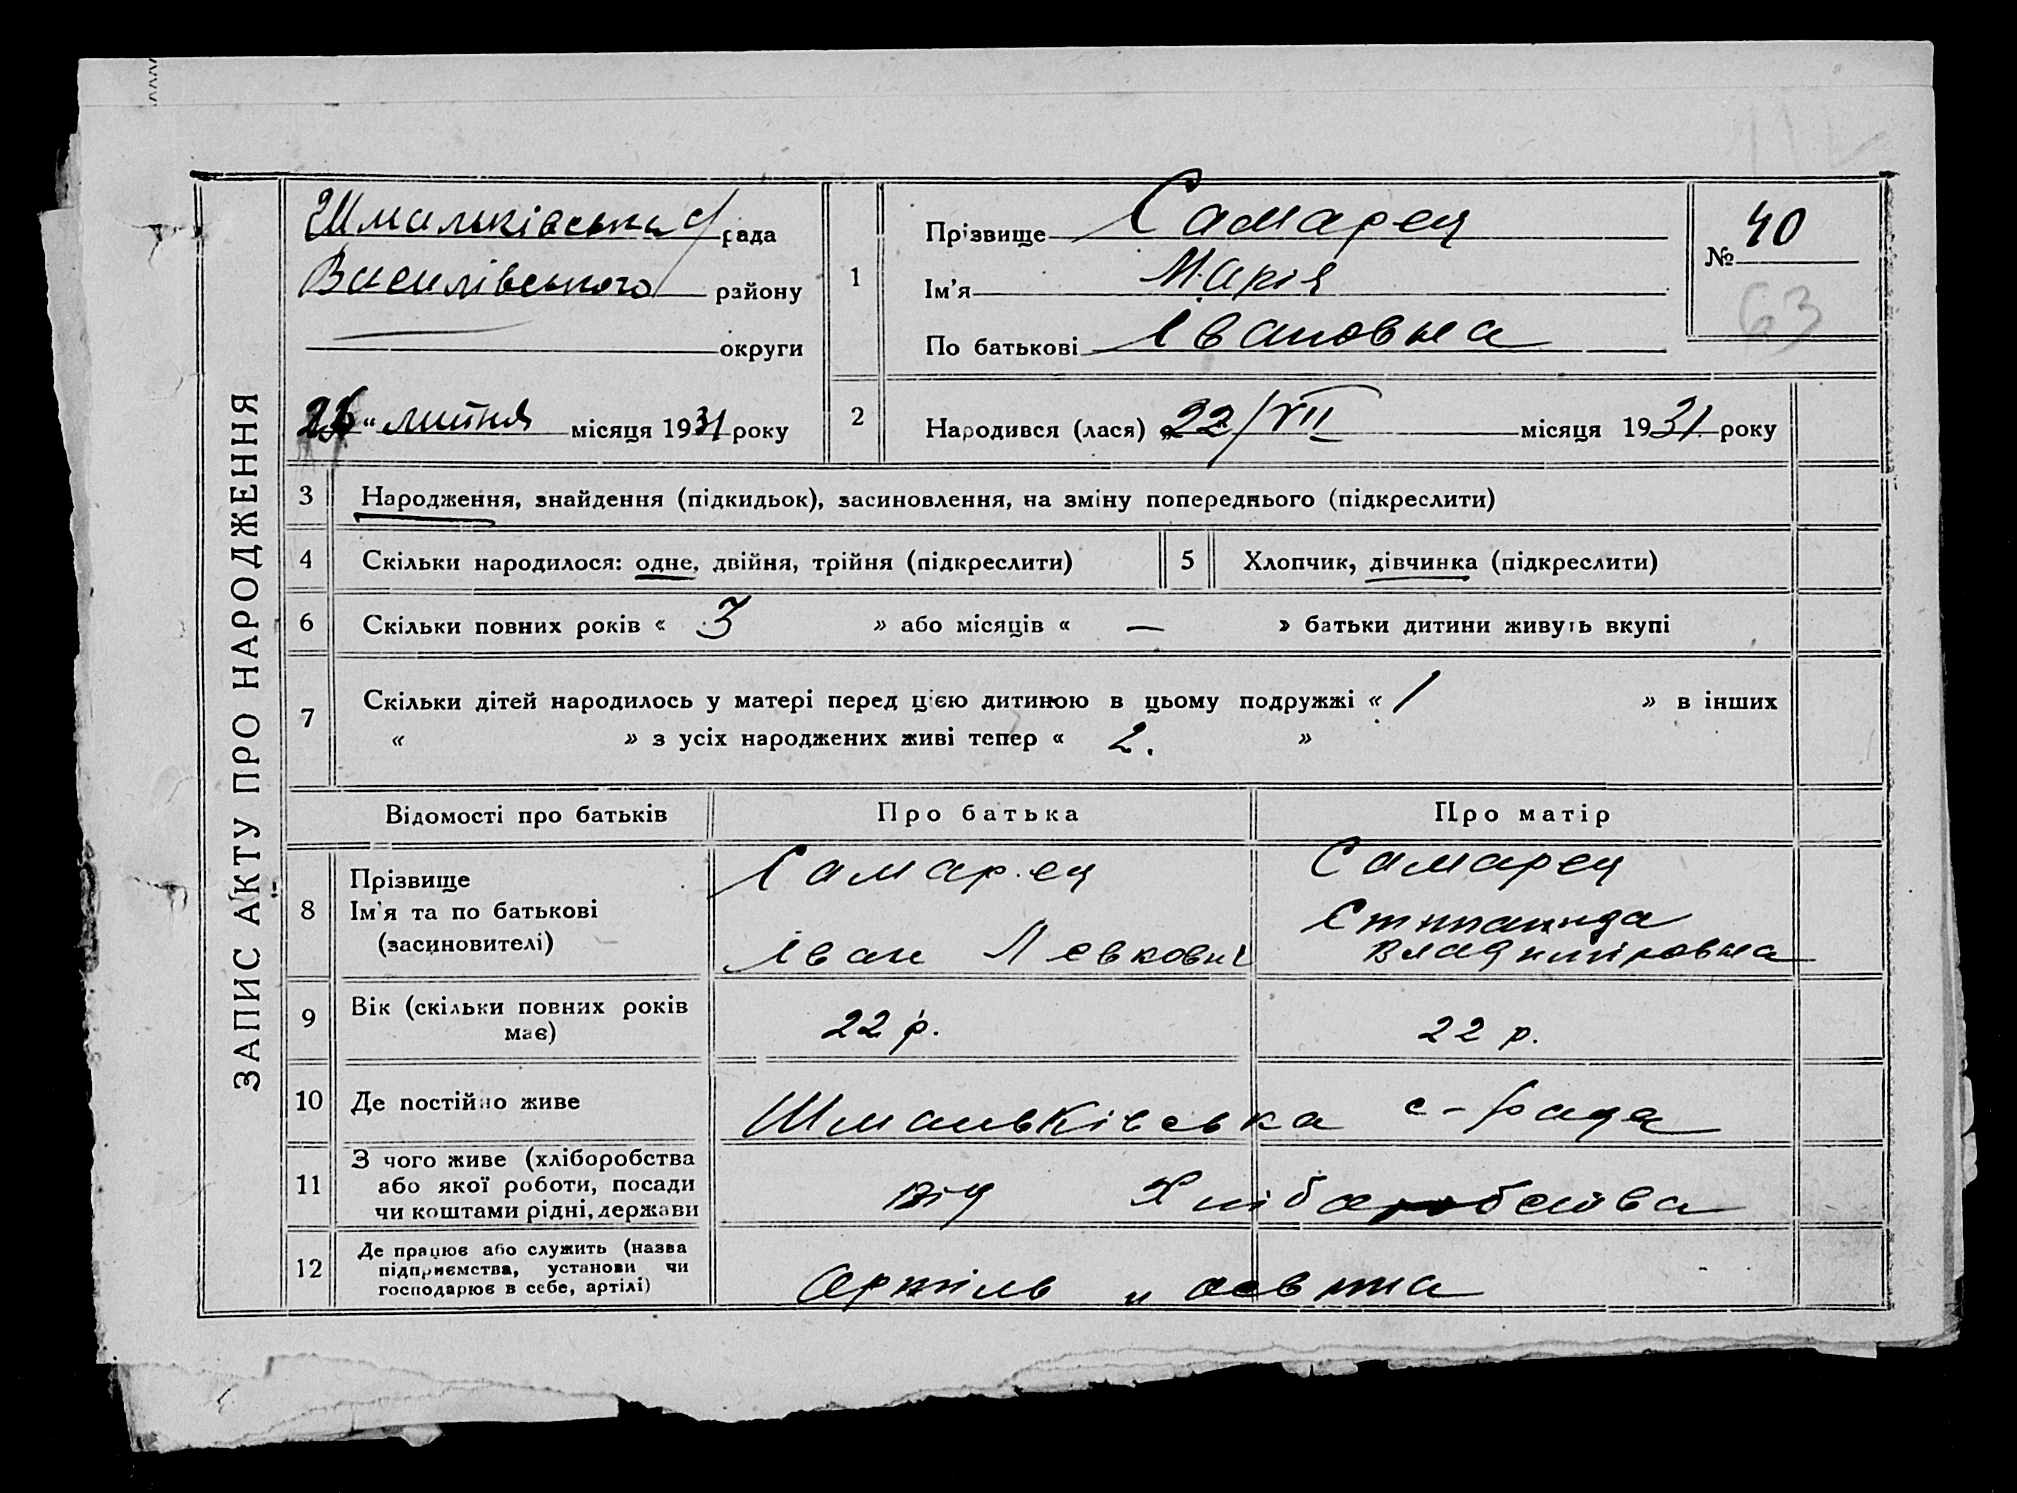 ЗАПИС АКТУ ПРО НАРОДЖЕННЯ
Шмальківська с/рада
Василівського району
округи
" липня місяця 1931 року
1
Прізвище Самарец
Ім'я Марія
По батькові Івановна
№ 40
63
2
Народився (лася) „22/VII місяця 1931 року
3 Народження, знайдення (підкидьок), засиновлення, на зміну попереднього (підкреслити)
4 Скільки народилося: одне, двійня, трійня (підкреслити) 5 Хлопчик, дівчинка (підкреслити)
6 Скільки повних років « 3 » або місяців « — » батьки дитини живуть вкупі
7 Скільки дітей народилось у матері перед цією дитиною в цьому подружжі « 1 » в інших
« » з усіх народжених живі тепер « 2. »
Відомості про батьків Про батька Про матір
8 Прізвище
Ім'я та по батькові
(засиновителі)
Самарец
Іван Левкович
Самарец
Владиміровна
9 Вік (скільки повних років
має)
22 р. 22 р.
10 Де постійно живе Шмальківська с-рада
11 З чого живе (хліборобства
або якої роботи, посади
чи коштами рідні, держави
від Хліборобства
12 Де працює або служить (назва
підприємства, установи чи
господарює в себе, артілі)
Артіль